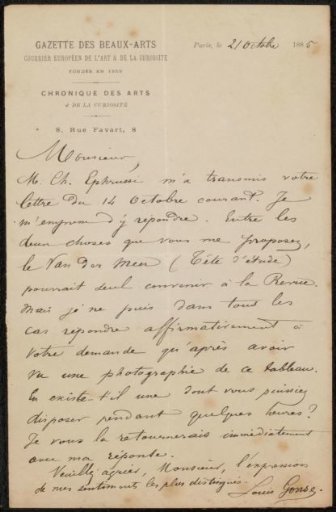 GAZETTE DES BEAUX-ARTS
COURRIER EUROPÉEN DE L'ART & DE LA CURIOSITÉ
FONDÉE EN 1859
CHRONIQUE DES ARTS
& DE LA CURIOSITÉ
8, Rue Favart, 8
Paris, le 21 Octobre 1885
Monsieur,
M. Ch. Ephrussi m'a transmis votre
lettre du 14 Octobre courant. Je
m'empresse d'y répondre. Entre les
deux choses que vous me proposez,
le Van der Meer (Tête d'étude)
pourrait seul convenir à la Revue.
Mais je ne puis dans tous les
cas répondre affirmativement à
votre demande qu'après avoir
vu une photographie de ce tableau.
En existe-t-il une dont vous puissiez
disposer pendant quelques heures?
Je vous la retournerais immédiatement
avec ma réponse.
Veuillez agréer, Monsieur, l'expression
de mes sentiments les plus distingués.
Louis Gonse